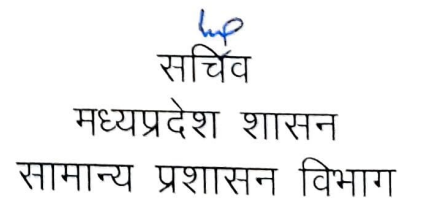 सचिव
मध्यप्रदेश शासन
सामान्य प्रशासन विभाग